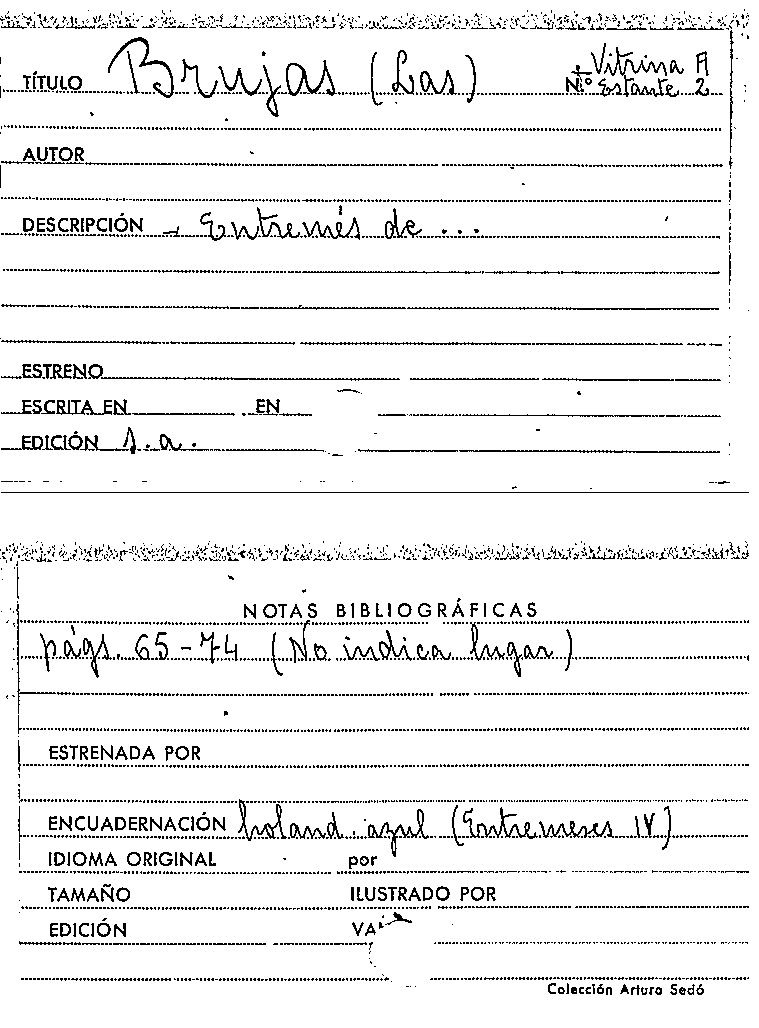 TÍTULO Brujas (Las) Vitrina A
N.º Estante 2
AUTOR
DESCRIPCIÓN - Entremés de ...
ESTRENO
ESCRITA EN EN
EDICIÓN s.a.
NOTAS BIBLIOGRÁFICAS
págs. 65-74 (No indica lugar)
ESTRENADA POR
ENCUADERNACIÓN holand. azul (Entremeses IV)
IDIOMA ORIGINAL por
TAMAÑO ILUSTRADO POR
EDICIÓN
Colección Arturo Sedó